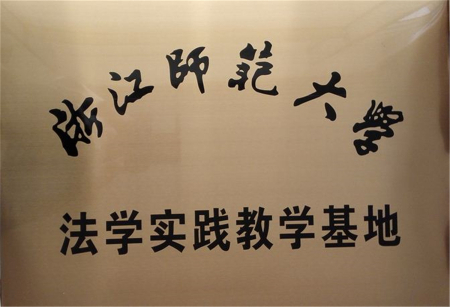 浙江師範大學
法学实践教学基地